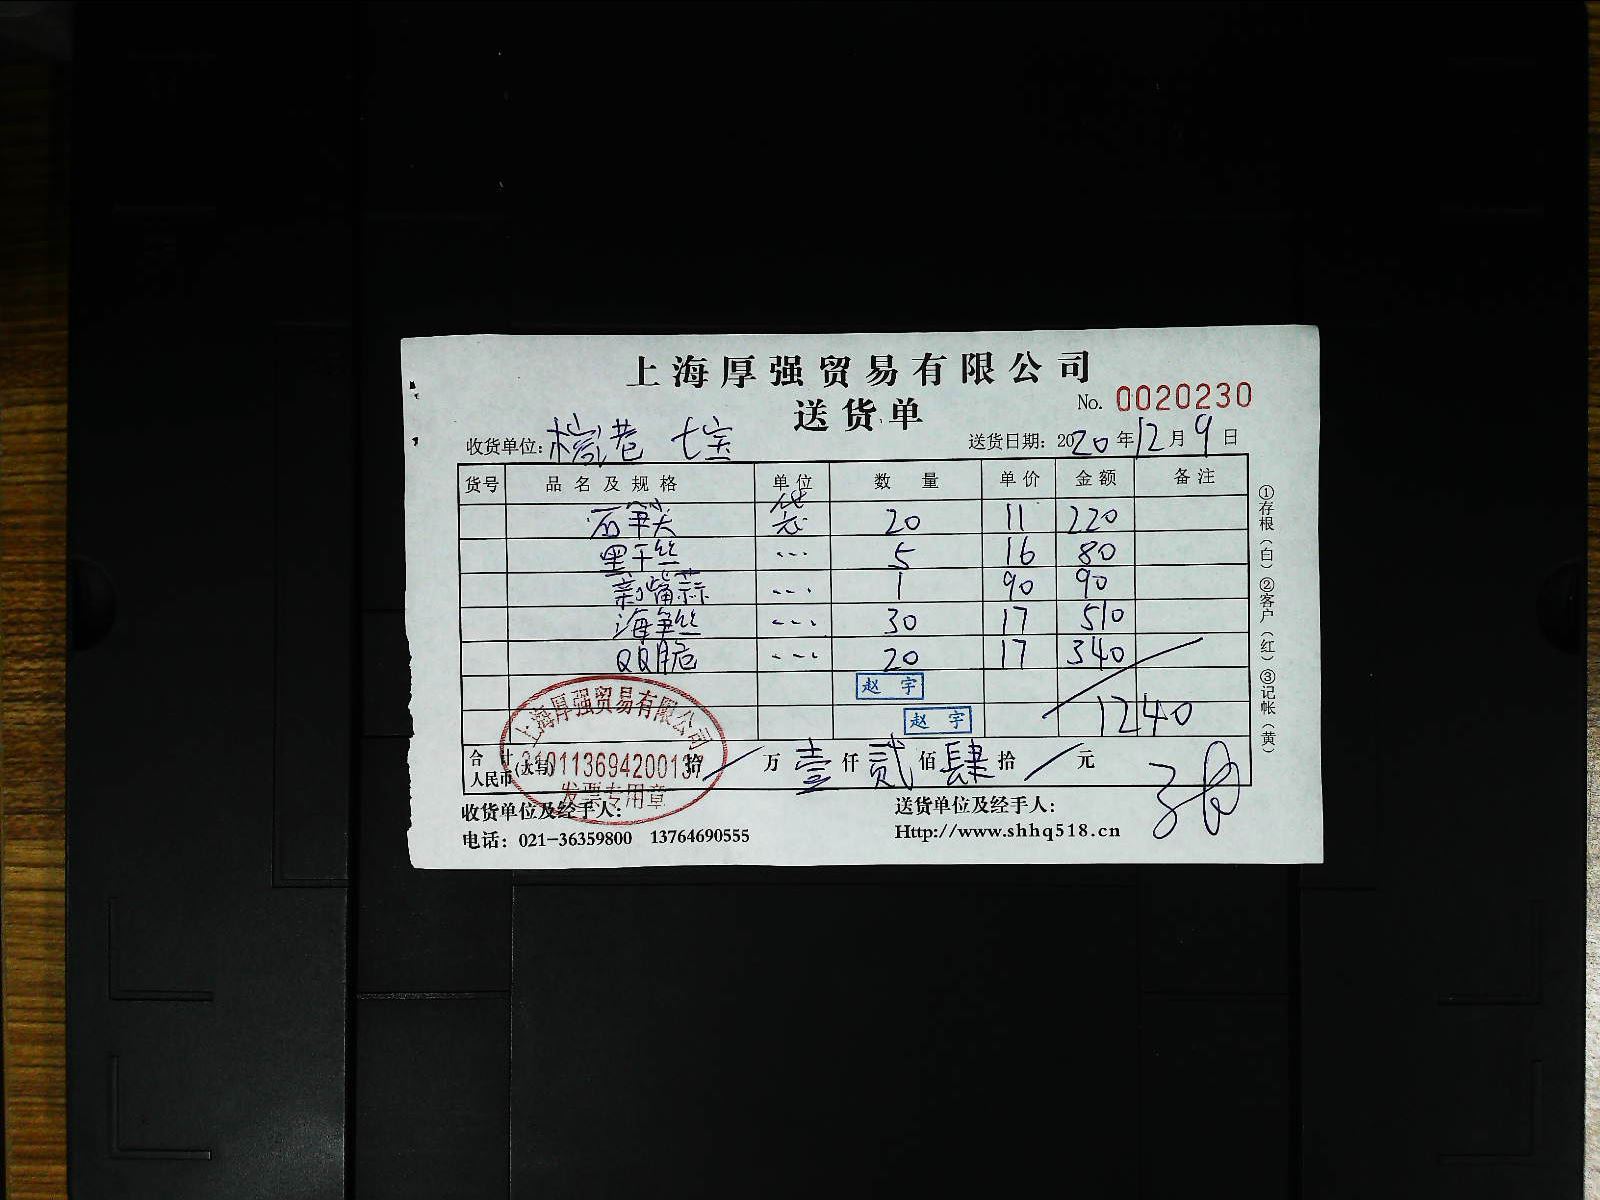 上海厚强贸易有限公司
送货单
No. 0020230
收货单位: 七宝
送货日期: 2020年12月9日
货号 品名及规格 单位 数量 单价 金额 备注
石笋尖 袋 20 11 220
黑干丝 ... 5 16 80
蒜 ... 1 90 90
海笋丝 ... 30 17 510
QQ脆 ... 20 17 340
赵宇
赵宇
1240
合计人民币(大写) 拾/万壹仟贰佰肆拾/元
上海厚强贸易有限公司
310113694200137
发票专用章
收货单位及经手人:
送货单位及经手人:
电话: 021-36359800 13764690555
Http://www.shhq518.cn
①存根(白)②客户(红)③记帐(黄)